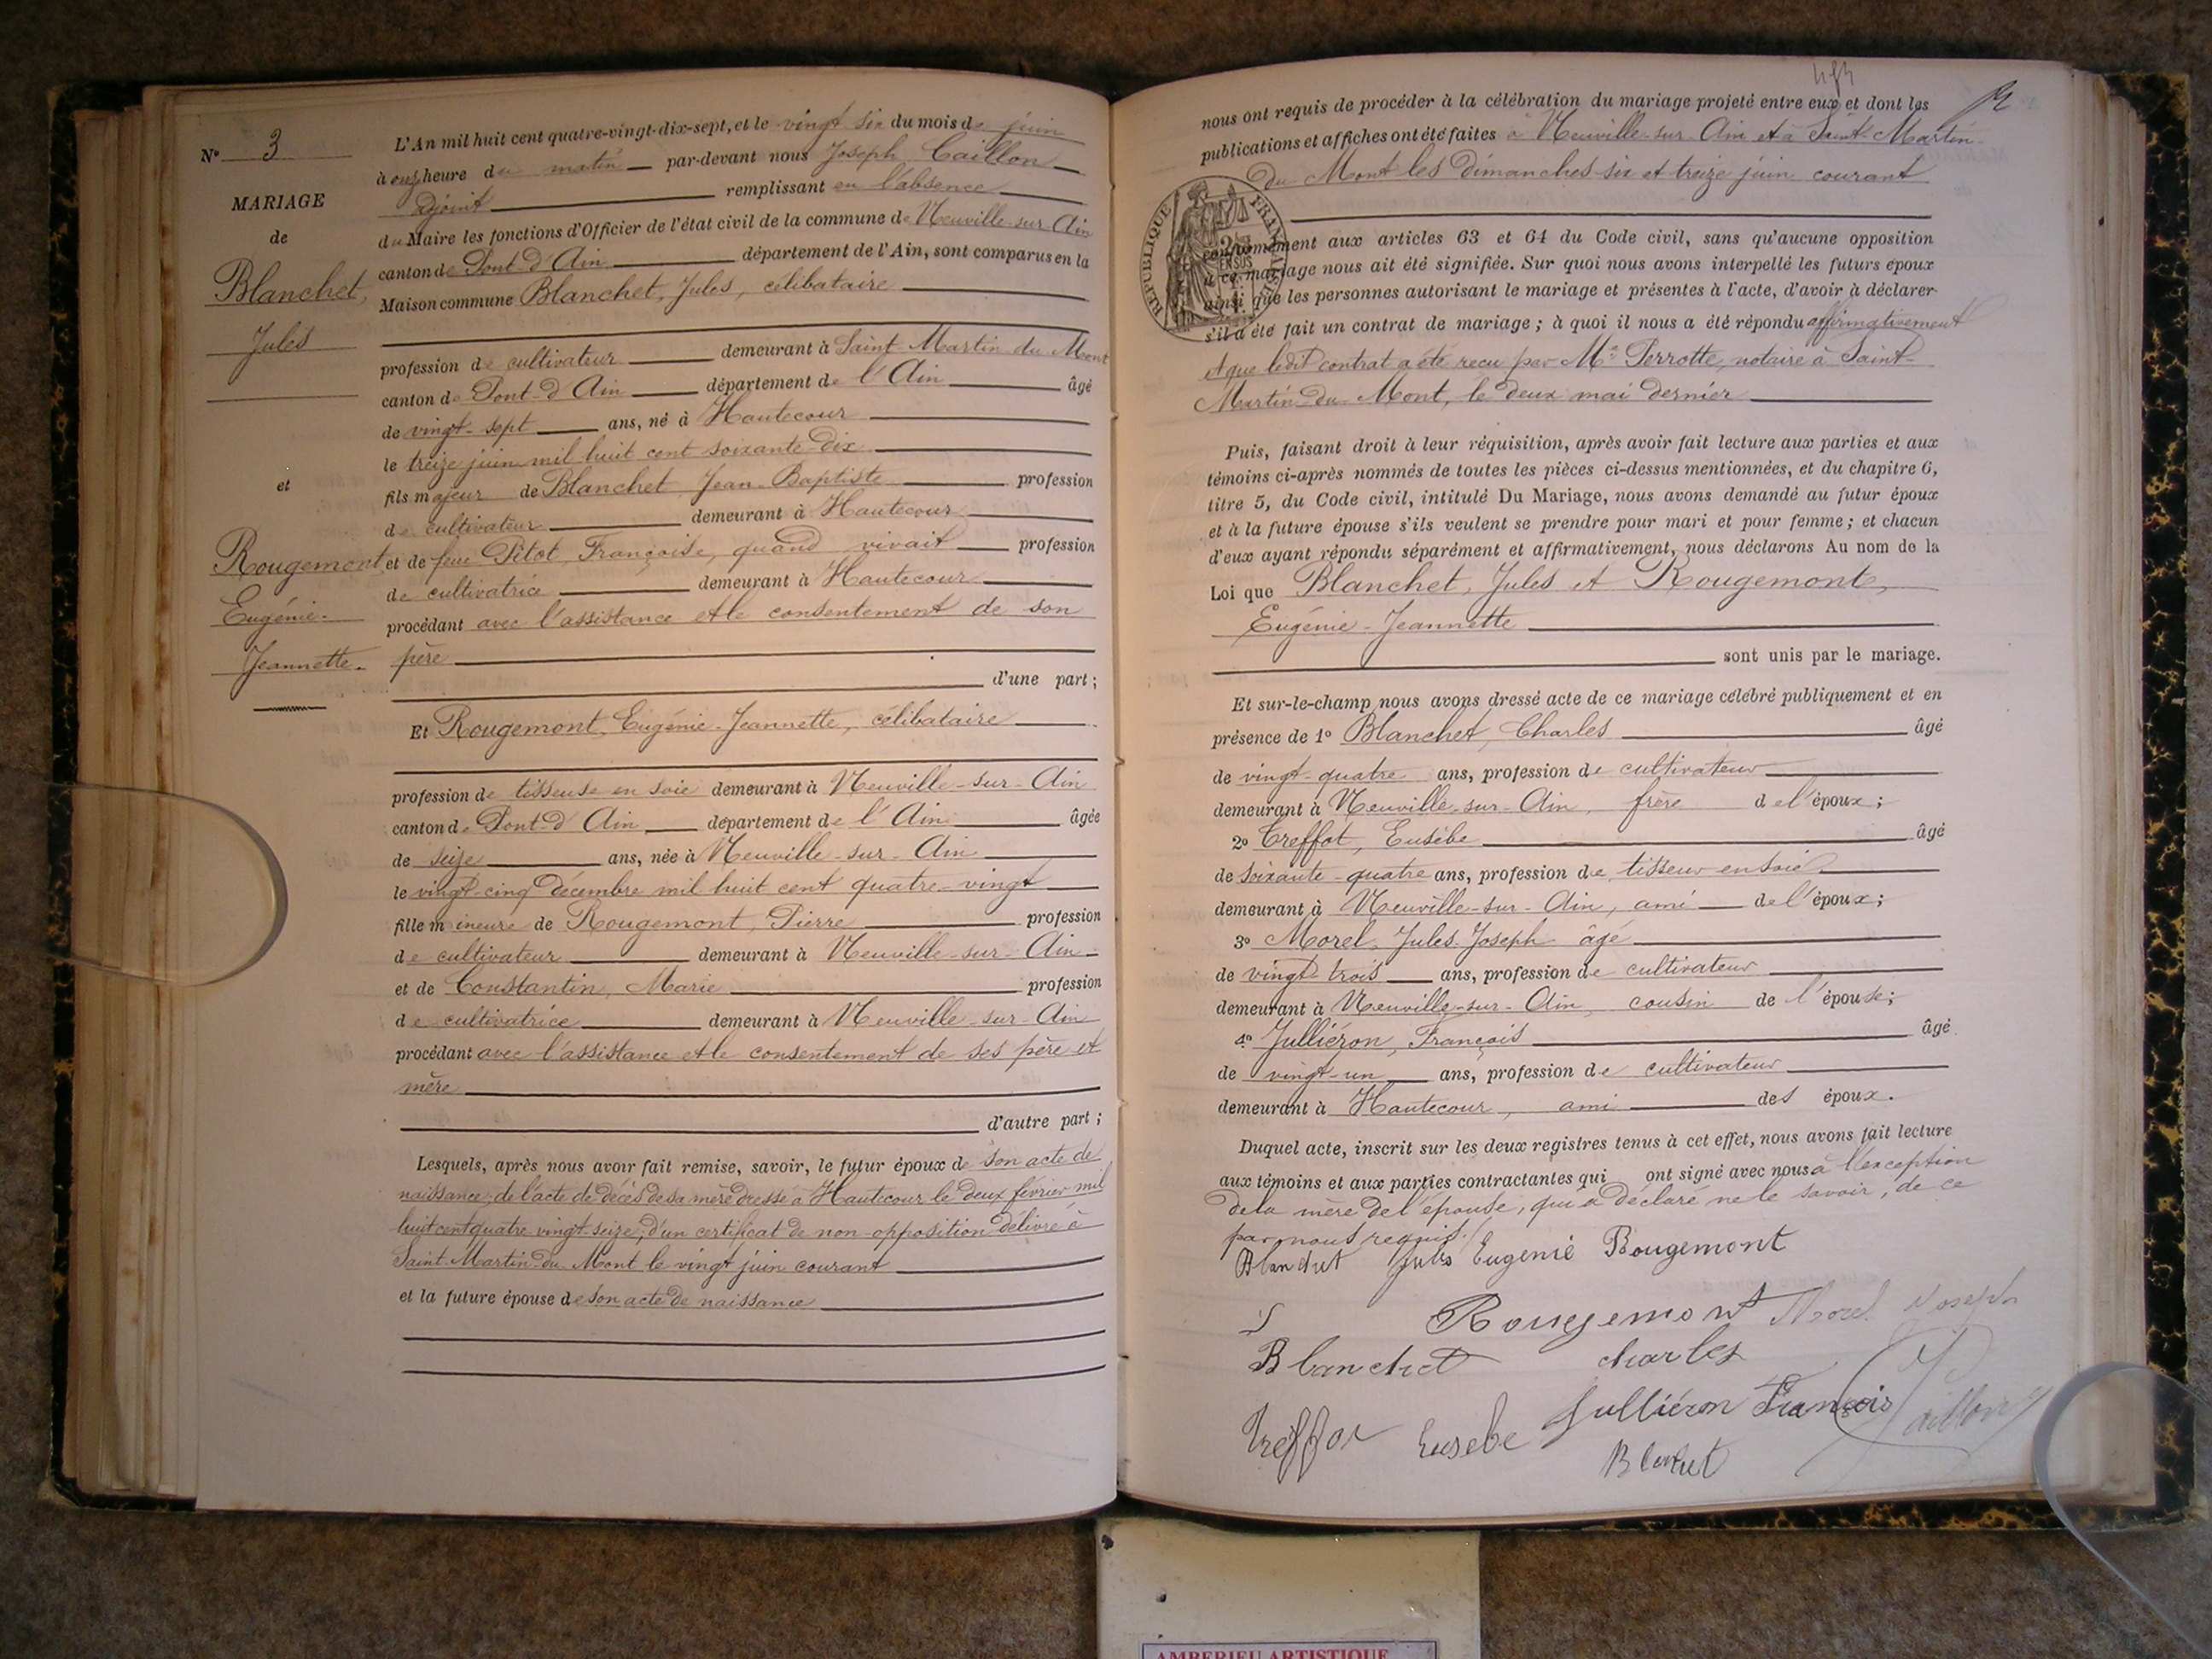 N° 3
MARIAGE
de
Blanchet,
Jules
et
Rougemont
Eugénie-
Jeannette.
L'An mil huit cent quatre-vingt-dix-sept, et le vingt six du mois de juin
à onze heure du matin par-devant nous Joseph Caillon
adjoint remplissant en l'absence
du Maire les fonctions d'Officier de l'état civil de la commune de Neuville-sur-Ain
canton de Pont-d'Ain département de l'Ain, sont comparus en la
Maison commune Blanchet, Jules, célibataire
profession de cultivateur demeurant à Saint Martin du Mont
canton de Pont-d'Ain département de l'Ain âgé
de vingt-sept ans, né à Hautecour
le treize juin mil huit cent soixante-dix
fils majeur de Blanchet Jean-Baptiste profession
de cultivateur demeurant à Hautecour
et de feue Pitot, Françoise, quand vivait profession
de cultivatrice demeurant à Hautecour
procédant avec l'assistance et le consentement de son
père
d'une part;
Et Rougemont, Eugénie-Jeannette, célibataire
profession de tisseuse en soie demeurant à Neuville-sur-Ain
canton de Pont-d'Ain département de l'Ain âgée
de seize ans, née à Neuville-sur-Ain
le vingt-cinq décembre mil huit cent quatre-vingt
fille mineure de Rougemont, Pierre profession
de cultivateur demeurant à Neuville-sur-Ain
et de Constantin, Marie profession
de cultivatrice demeurant à Neuville-sur-Ain
procédant avec l'assistance et le consentement de ses père et
mère
d'autre part;
Lesquels, après nous avoir fait remise, savoir, le futur époux de son acte de
naissance, de l'acte de décès de sa mère dressé à Hautecour le deux février mil
huit cent quatre vingt-seize, d'un certificat de non-opposition délivré à
Saint-Martin-du-Mont le vingt juin courant
et la future épouse de son acte de naissance
nous ont requis de procéder à la célébration du mariage projeté entre eux et dont les
publications et affiches ont été faites à Neuville-sur-Ain et à Saint-Martin-
du-Mont les dimanches six et treize juin courant
RÉPUBLIQUE FRANÇAISE
conformément aux articles 63 et 64 du Code civil, sans qu'aucune opposition
à ce mariage nous ait été signifiée. Sur quoi nous avons interpellé les futurs époux
ainsi que les personnes autorisant le mariage et présentes à l'acte, d'avoir à déclarer
s'il a été fait un contrat de mariage; à quoi il nous a été répondu affirmativement
et que ledit contrat a été reçu par Me Perrotte, notaire à Saint-
Martin-du-Mont, le deux mai dernier
Puis, faisant droit à leur réquisition, après avoir fait lecture aux parties et aux
témoins ci-après nommés de toutes les pièces ci-dessus mentionnées, et du chapitre 6,
titre 5, du Code civil, intitulé Du Mariage, nous avons demandé au futur époux
et à la future épouse s'ils veulent se prendre pour mari et pour femme; et chacun
d'eux ayant répondu séparément et affirmativement, nous déclarons Au nom de la
Loi que Blanchet, Jules et Rougemont,
Eugénie-Jeannette
sont unis par le mariage.
Et sur-le-champ nous avons dressé acte de ce mariage célébré publiquement et en
présence de 1° Blanchet, Charles âgé
de vingt-quatre ans, profession de cultivateur
demeurant à Neuville-sur-Ain, frère de l'époux;
2° Treffot, Eusèbe âgé
de soixante-quatre ans, profession de tisseur en soie
demeurant à Neuville-sur-Ain, ami de l'époux;
3° Morel, Jules-Joseph âgé
de vingt trois ans, profession de cultivateur
demeurant à Neuville-sur-Ain, cousin de l'épouse;
4° Julliéron, François âgé
de vingt-un ans, profession de cultivateur
demeurant à Hautecour, ami des époux.
Duquel acte, inscrit sur les deux registres tenus à cet effet, nous avons fait lecture
aux témoins et aux parties contractantes qui ont signé avec nous à l'exception
de la mère de l'épouse, qui a déclaré ne le savoir, de ce
par nous requis.
Blanchet Jules Eugenie Rougemont
Rougemont Morel Joseph
Blanchet charles
Treffot Eusebe Julliéron François Caillon
Blanchet
AMBERIEU ARTISTIQUE